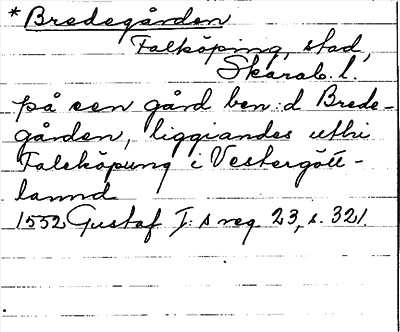 * Bredegården
Falköping, stad,
Skarab. l.
på een gård ben:d Brede-
gården, liggiandes uthi
Faleköpung i Vestergött-
lannd
1552 Gustaf I:s reg. 23, s. 321.